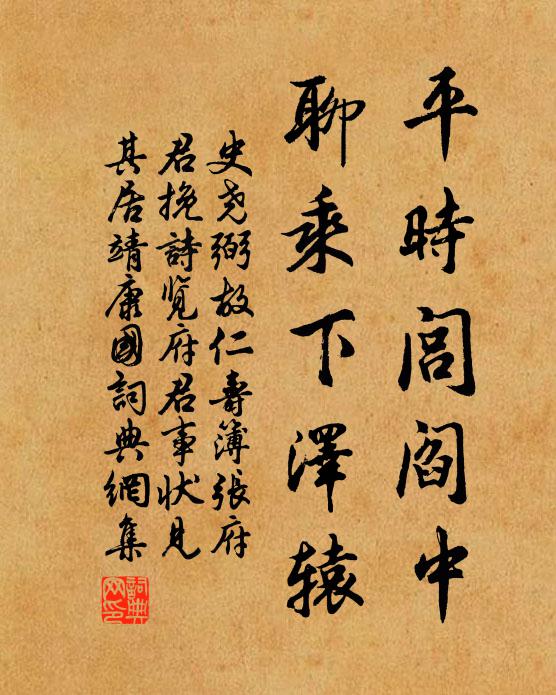 平時閭閻中
聊乘下澤辕
史尧弼故仁壽簿張府
君挽詩览府君事状见
其居靖康國詞典網集
詞典网印